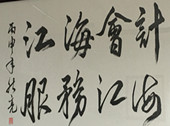 江海會計
服務江海
丙申年